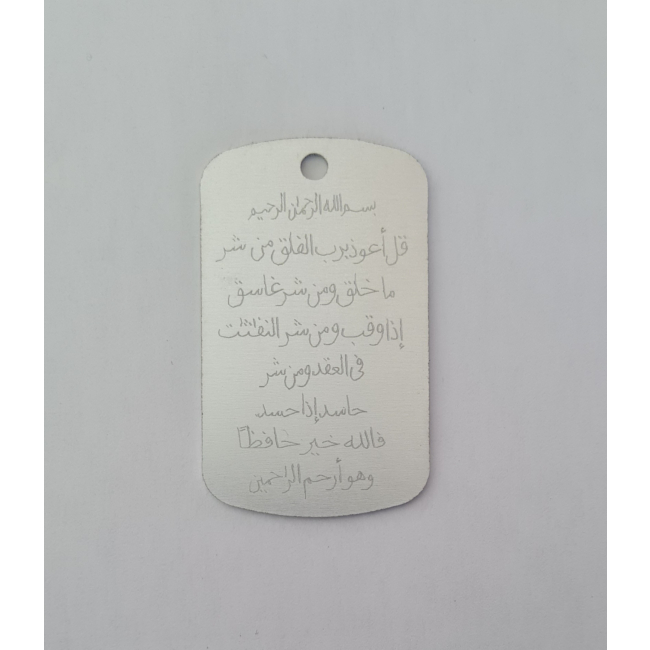 بسم الله الرحمان الرحيم
قل أعوذ برب الفلق من شر
ما خلق ومن شر غاسق
إذا وقب ومن شر النفثت
في العقد ومن شر
حاسد إذا حسد
فالله خير حافظاً
وهو أرحم الراحمين